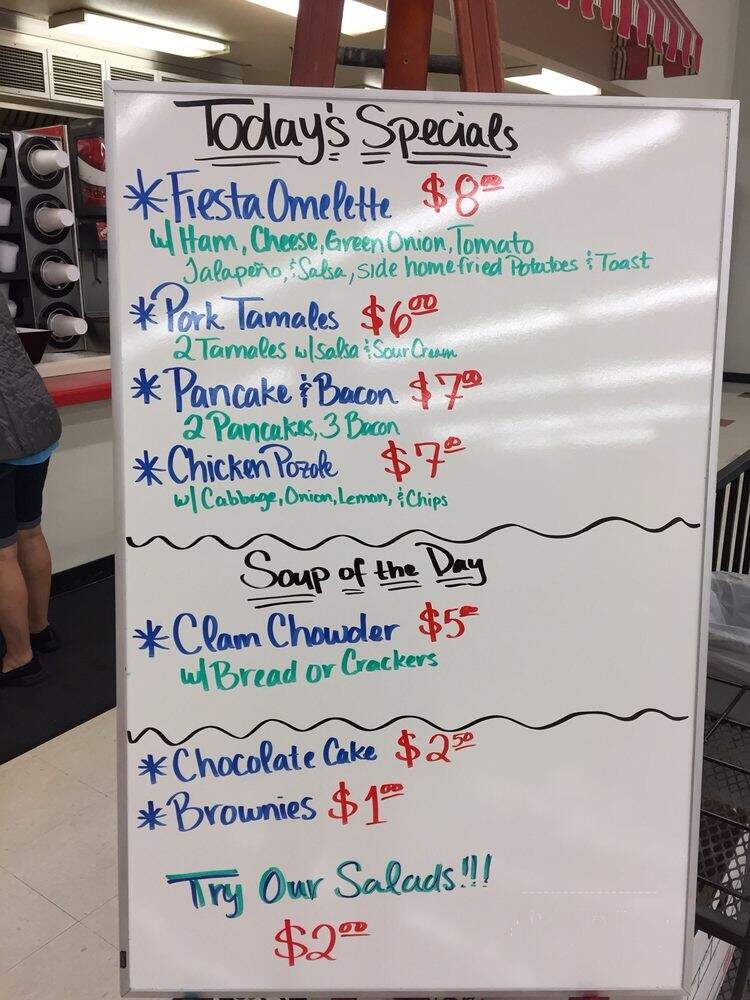 Today's Specials
* Fiesta Omelette $8.00
w/ Ham, Cheese, Green Onion, Tomato
Jalapeño, & Salsa, side home fried Potatoes & Toast
* Pork Tamales $6.00
2 Tamales w/ salsa & Sour Cream
* Pancake & Bacon $7.00
2 Pancakes, 3 Bacon
* Chicken Pozole $7.00
w/ Cabbage, Onion, Lemon, & Chips
Soup of the Day
* Clam Chowder $5.00
w/ Bread or Crackers
* Chocolate Cake $2.50
* Brownies $1.00
Try Our Salads!!!
$2.00